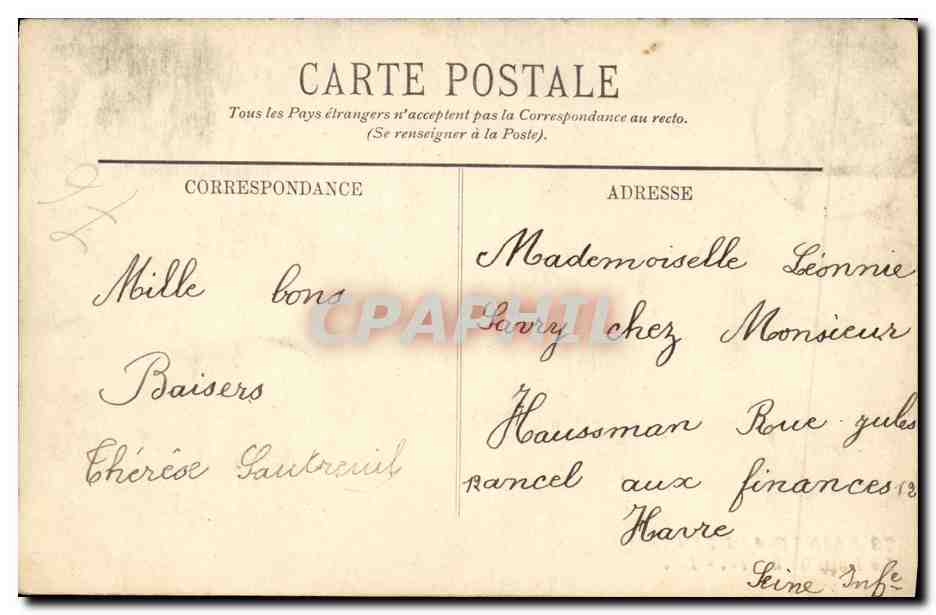 CARTE POSTALE
Tous les Pays étrangers n'acceptent pas la Correspondance au recto.
(Se renseigner à la Poste).
CORRESPONDANCE
Mille bons
Baisers
Thérése Sautreuil
ADRESSE
Mademoiselle Léonnie
Savry chez Monsieur
Haussman Rue jules
ancel aux finances 12
Havre
Seine Infe
CPAPHIL